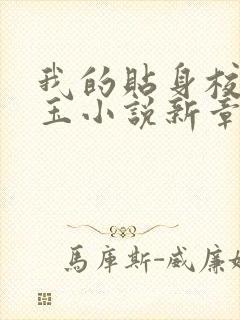 我的貼身校
玉小說新章
馬庫斯-威廉姆